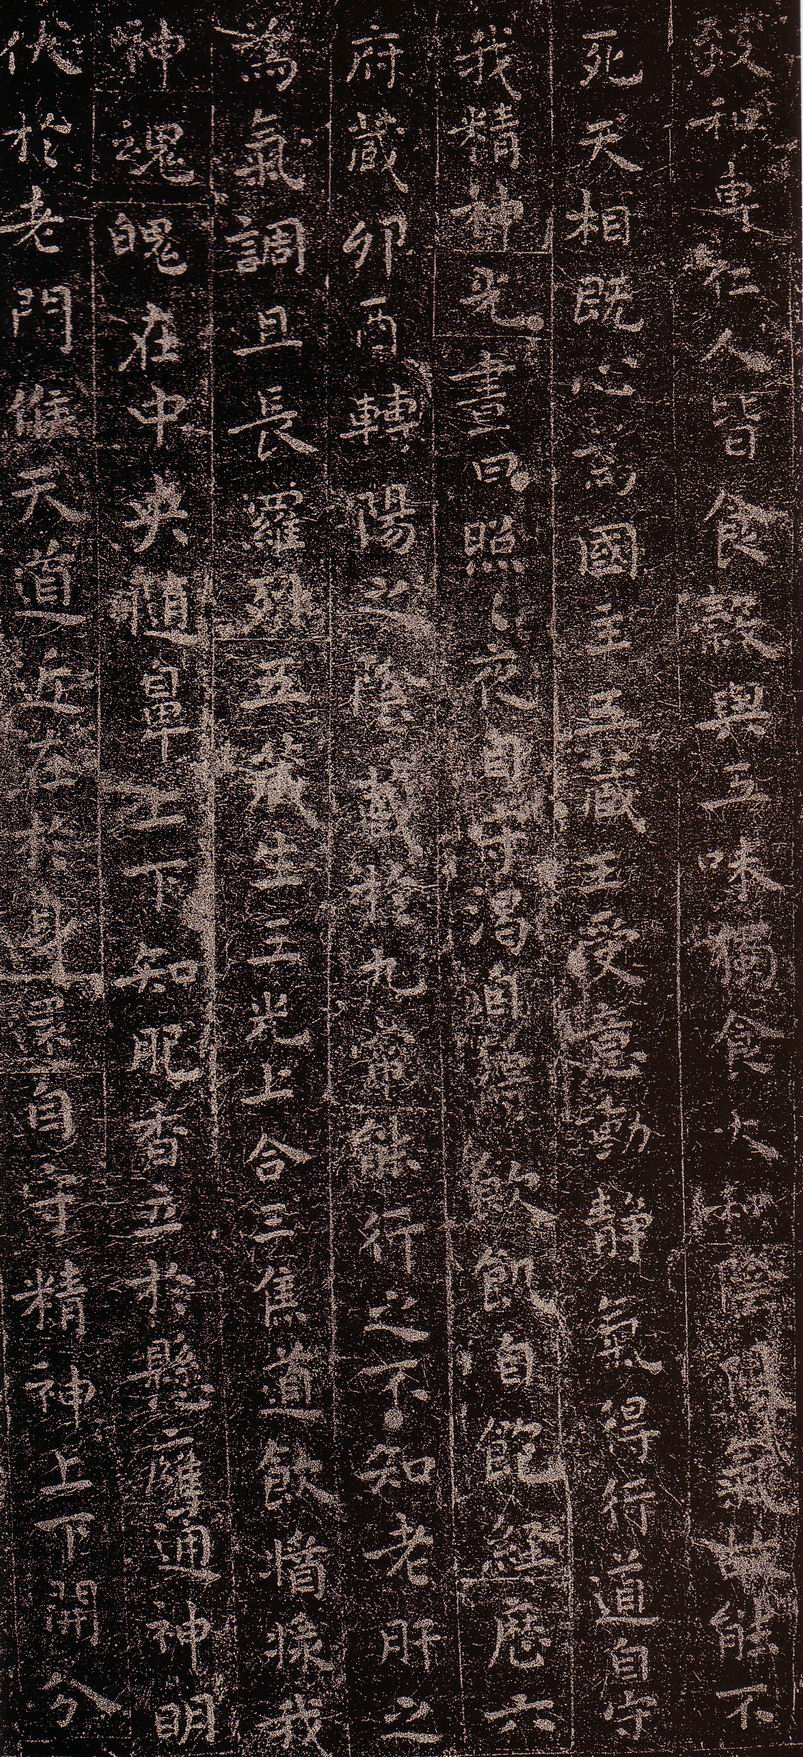 致和專仁人皆食穀與五味獨食大和陰陽氣故能不
死天相既心為國主五藏王受意動静氣得行道自守
我精神光晝日照〻夜自守渴自得飲飢自飽經歷六
府藏卯酉轉陽之陰藏於九常能行之不知老肝之
為氣調且長羅列五藏生三光上合三焦道飲漿我
神魂魄在中央隨鼻上下知肥香立於懸膺通神明
伏於老門候天道近在於身還自守精神上下開分